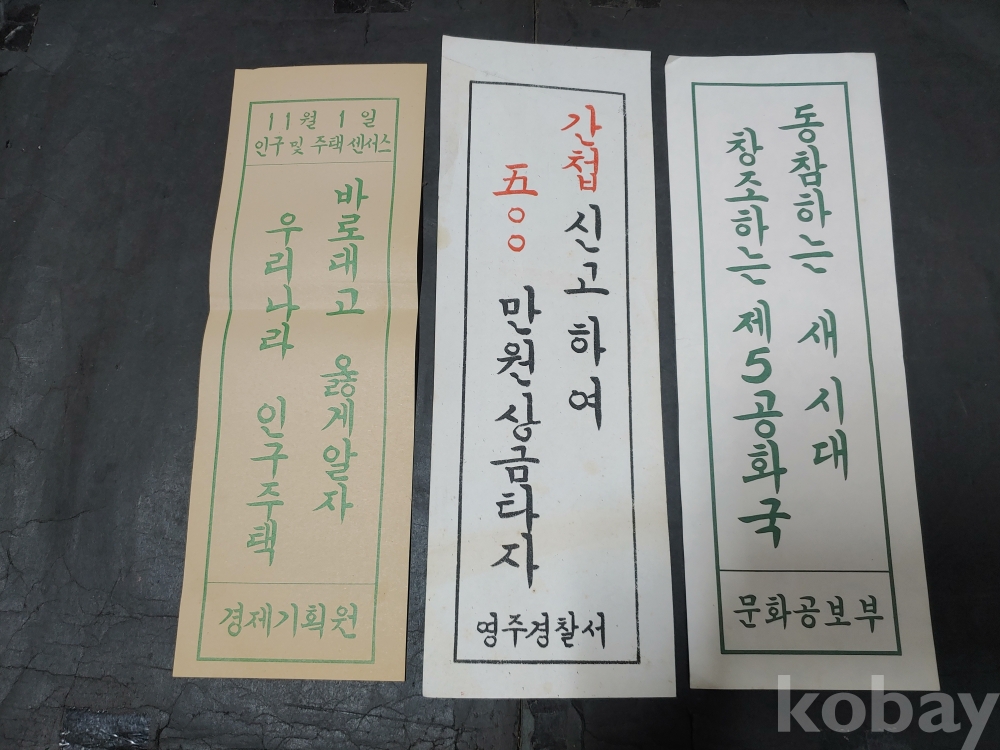 11월 1일
인구 및 주택센서스
바로대고 옳게알자
우리나라 인구주택
경제기획원
간첩 신고 하여
五○○ 만원상금타자
영주경찰서
동참하는 새시대
창조하는 제5공화국
문화공보부
kobay